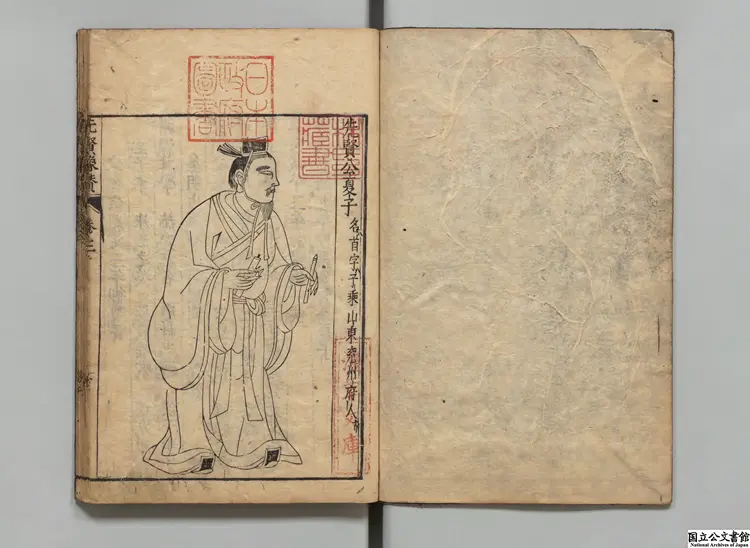 日本
政府
圖書
先賢公夏子 名首字子乘山東兖州府人
先賢像贊 卷之二
国立公文書館
National Archives of Japan